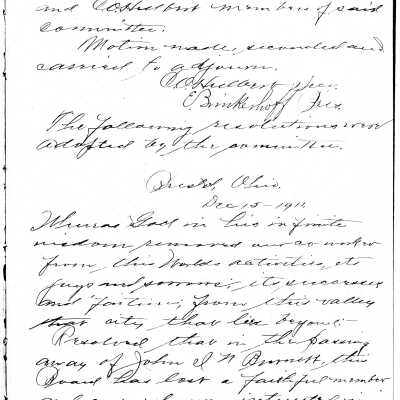 and C O Hulbert members of said
committee.
Motion made, seconded and
carried to adjourn.
C O Hulbert Sec.
E Brinkerhoff Pres.
The following resolutions were
adopted by the committee.
Bristol, Ohio.
Dec 15 - 1911
Whereas God in his infinite
wisdom removed our co worker
from, this Worlds activities, its
joys and sorrows; its successes
and failures, from this valley
that city, that lies beyond;-
Resolved that in the passing
away of John I N Burnett, this
Board has lost a faithful member